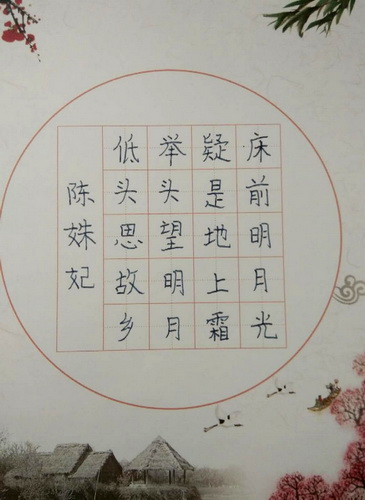 床前明月光
疑是地上霜
举头望明月
低头思故乡
陈姝妃